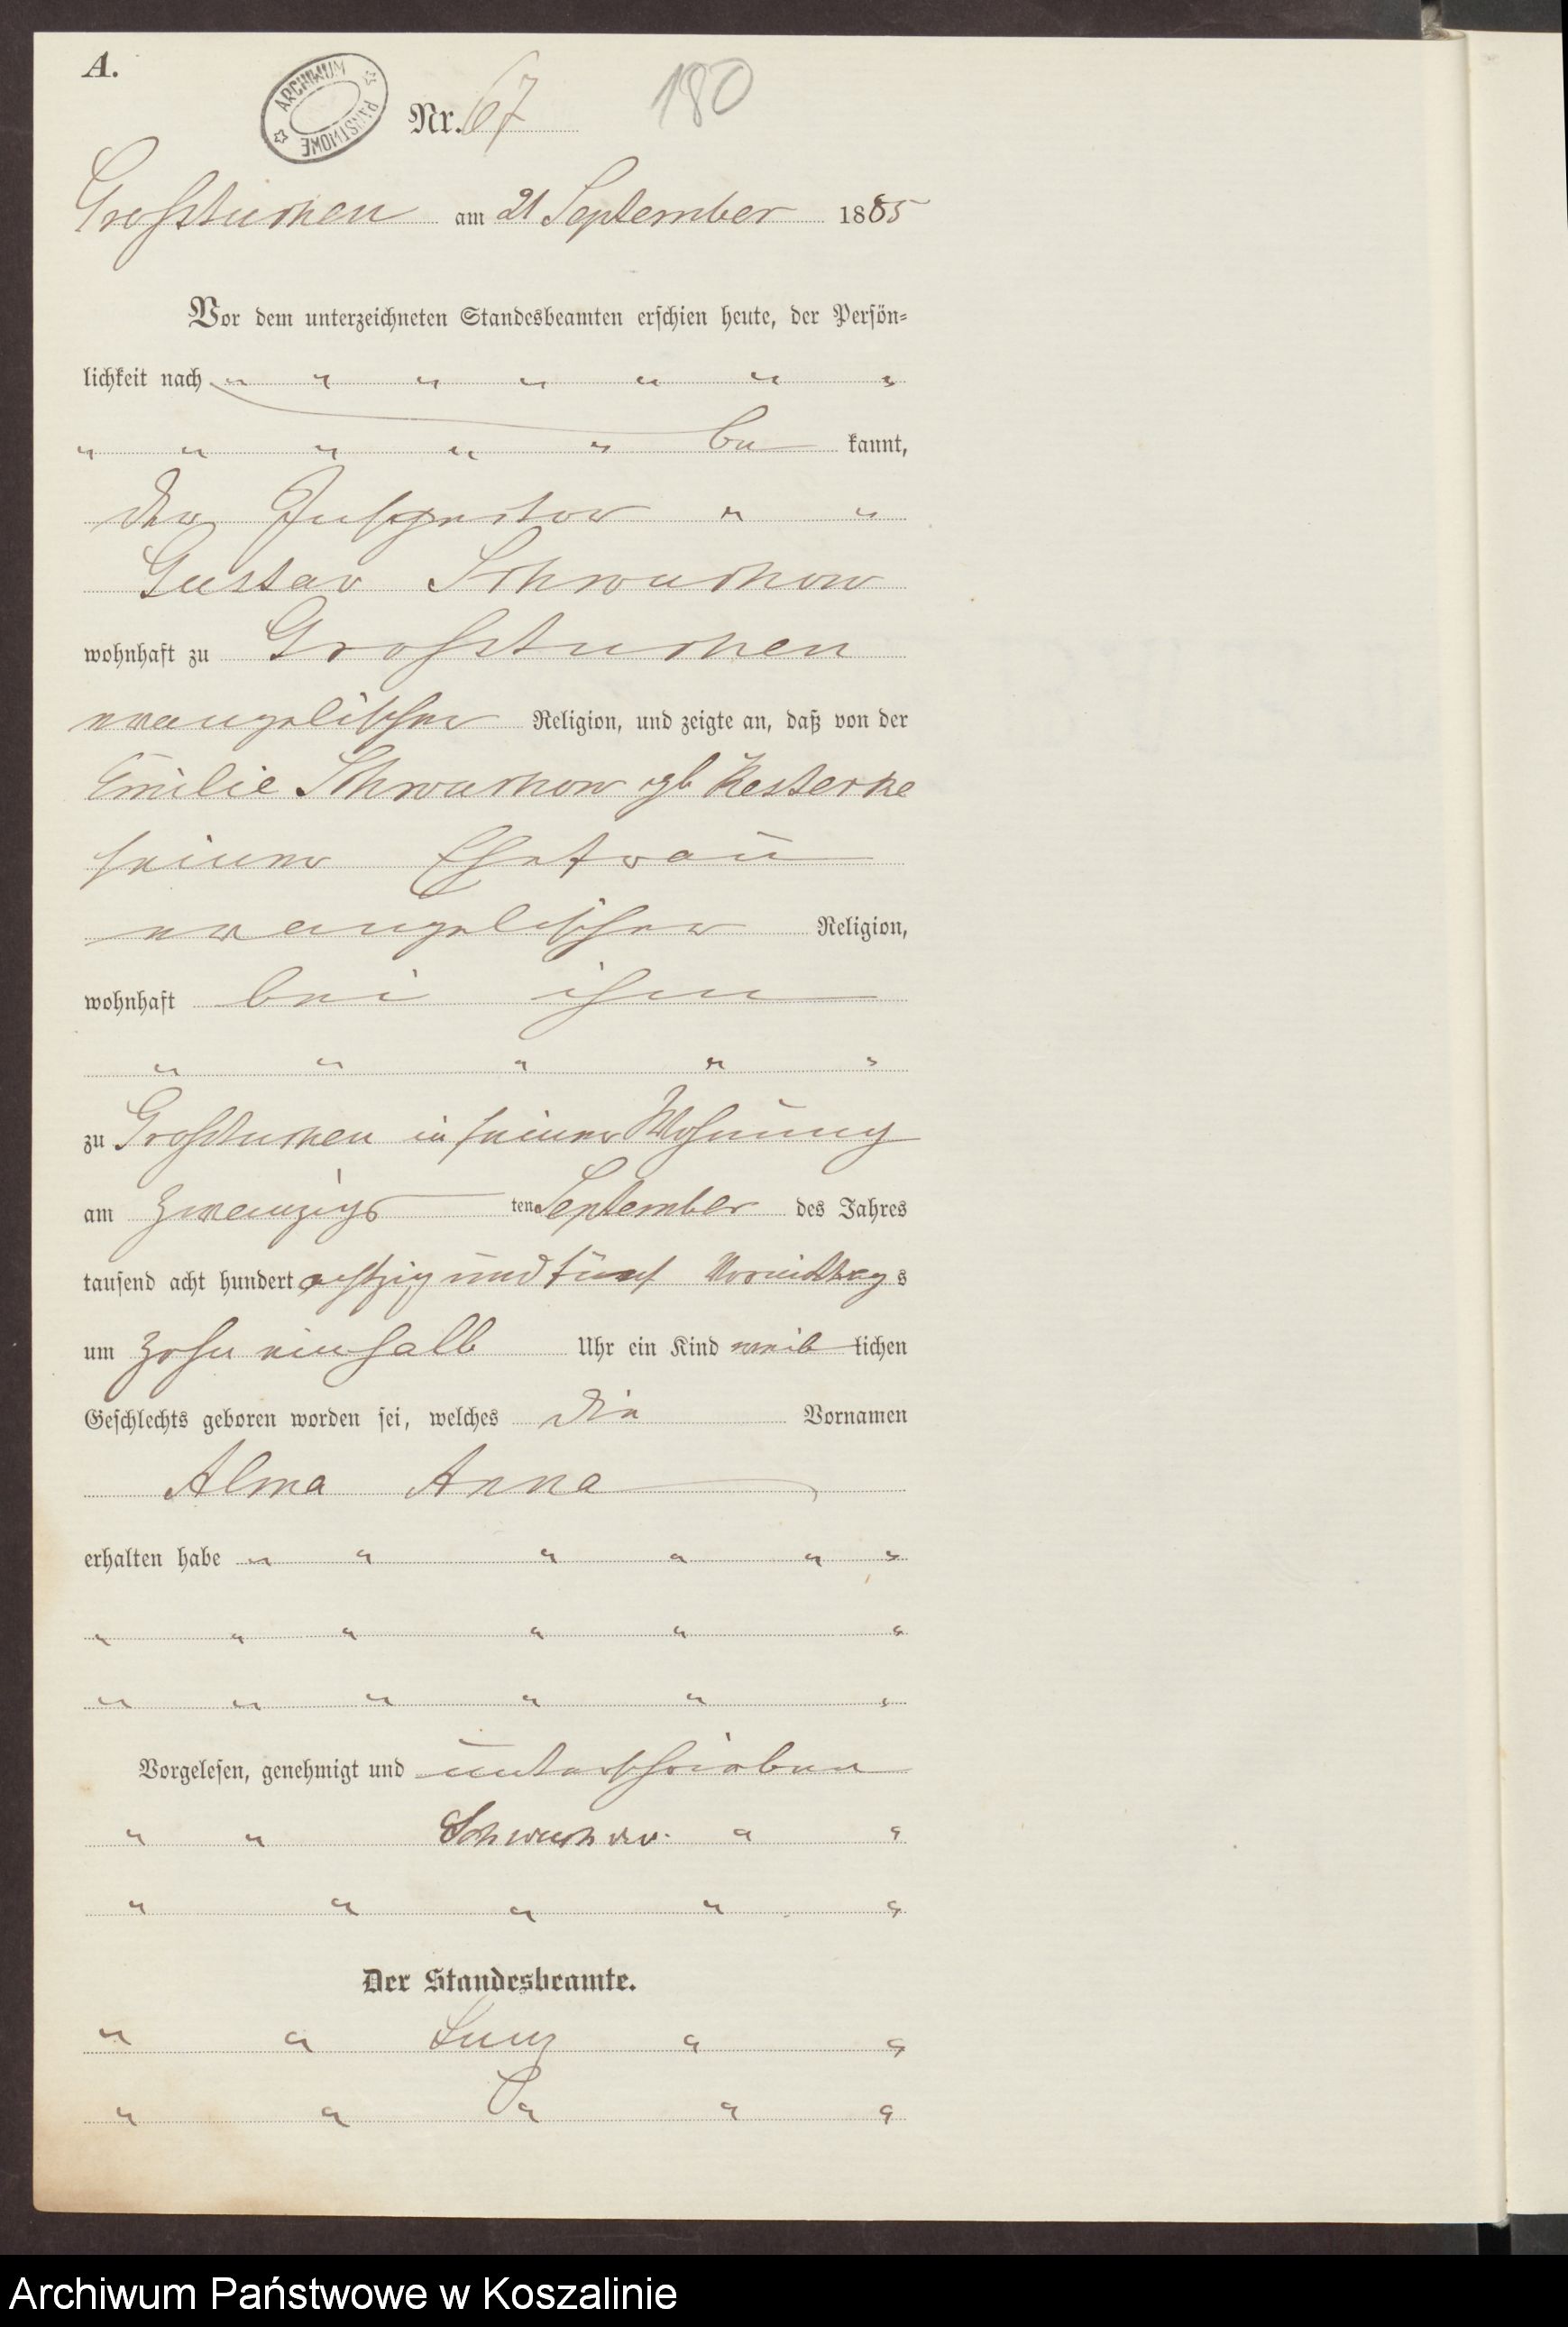 A.
ARCHIWUM PAŃSTWOWE
Nr. 67 180
Grosstuchen am 21 September 1885
Vor dem unterzeichneten Standesbeamten erschien heute, der Persön=
lichkeit nach " " " " " " "
" " " " " be kannt,
der Inspector " "
Gustav Schwuchow
wohnhaft zu Grosstuchen
evangelischer Religion, und zeigte an, daß von der
Emilie Schwuchow geb Kesterke
seiner Ehefrau
evangelischer Religion,
wohnhaft bei ihm
" " " " "
zu Grosstuchen in seiner Wohnung
am zwanzigs ten September des Jahres
tausend acht hundert achtzig und fünf Vormittag s
um zehn einhalb Uhr ein Kind weib lichen
Geschlechts geboren worden sei, welches die Vornamen
Alma Anna
erhalten habe " " " " " "
" " " " " "
" " " " " "
Vorgelesen, genehmigt und unterschrieben
" " Schwuchow. " "
" " " " "
Der Standesbeamte.
" " " "
" " " " "
Archiwum Państwowe w Koszalinie